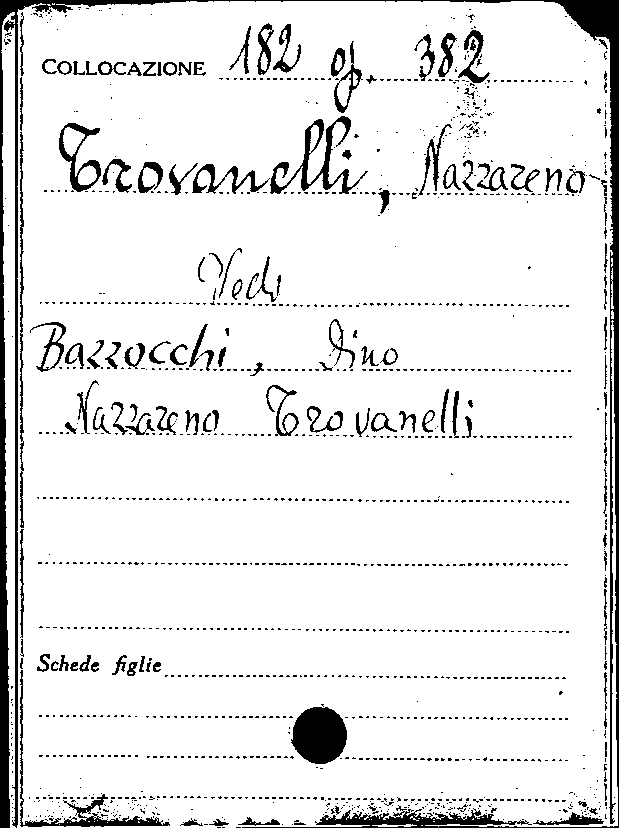 COLLOCAZIONE 182 op. 382
Trovanelli, Nazzareno
Vedi
Bazzocchi, Dino
Nazzareno Trovanelli
Schede figlie